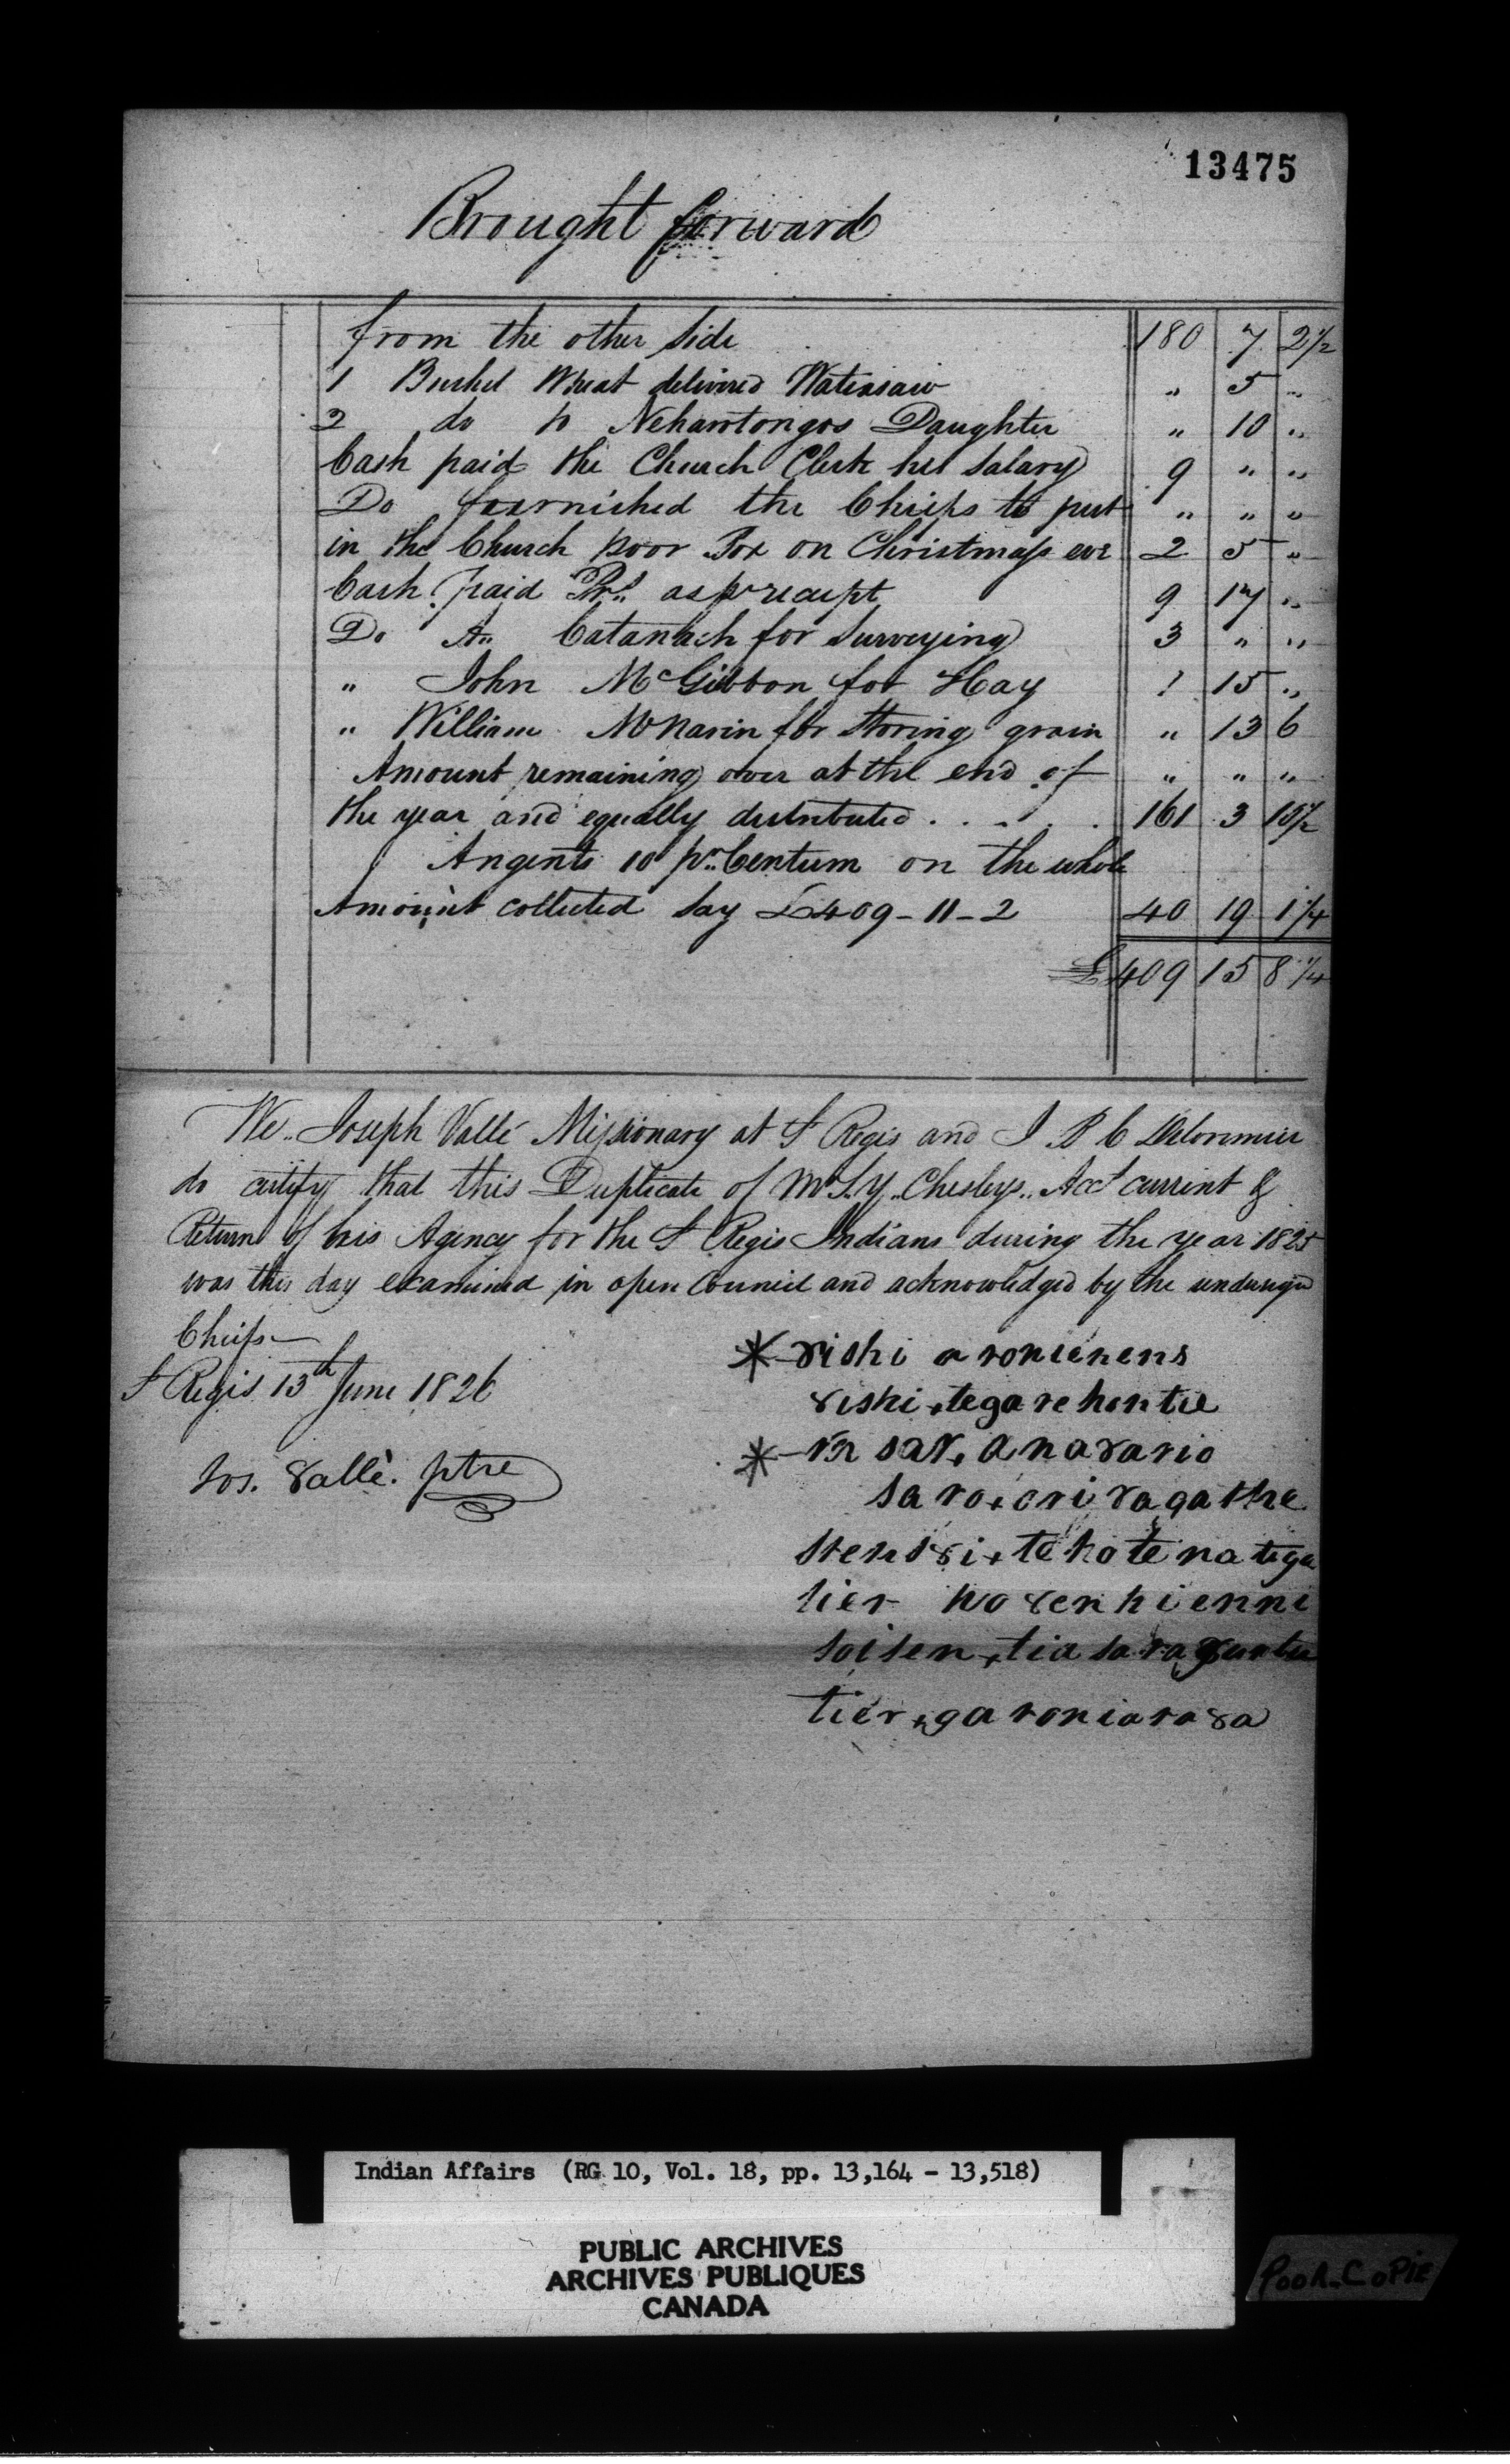 13475
Brought forward
from the other side 180 7 2½
1 Bushel Wheat delivered Watensaw " 5 "
2 do to Nehawtongos Daughter " 10 "
Cash paid the Church Clerk his Salary 9 " "
Do fournished the Chiefs to put " " "
in the Church poor Box on Christmass eve 2 5 "
Cash paid as pr receipt 9 17 "
Do A. Catanach for Surveying 3 " "
" John McGibbon for Hay 1 15 "
" William for Storing grain " 13 6
Amount remaining over at the end of " " "
the year and equally distributed . . . . . 161 3 10½
Angents 10 pr Centum on the whole
Amount collected Say £409-11-2 40 19 1¼
£409 15 8¼
We Joseph Vallé Missionary at St Regis and J B C Delorimier
do certify that this Duplicate of Mr S. Y. Chesleys Acct current &
Return of his Agency for the St Regis Indians during the year 1825
was this day examined in open Council and acknowledged by the undersigd
Chiefs
St Regis 13th June 1826
Jos. 8allé. ptre
* 8ishi aronienens
8ishi + tegarehontie
* sar, ana8ario
saro + ori8agathe
stens8i + tehotenatiga
tier ho8enhienni
soisen + tiasara
tier + garoniara8a
Indian Affairs (RG 10, Vol. 18, pp. 13,164 - 13,518)
PUBLIC ARCHIVES
ARCHIVES PUBLIQUES
CANADA
POOR-COPIE